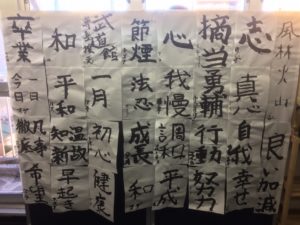 風林火山
良い加減
志
真心
自我
幸せ
摘当
勇輔
行動
努力
心
我慢
周口
平成
節煙
法忍
成長
和
武道館
一月
初心
健康
和
平和
温故
知新
早起き
卒業
一日
今日
凡事
徹底
希望